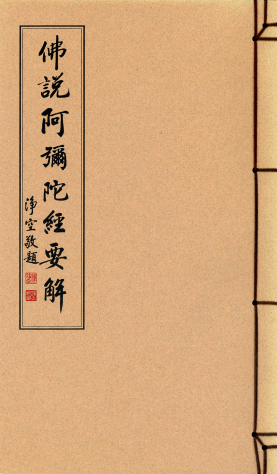 佛說阿彌陀經要解
淨空敬題